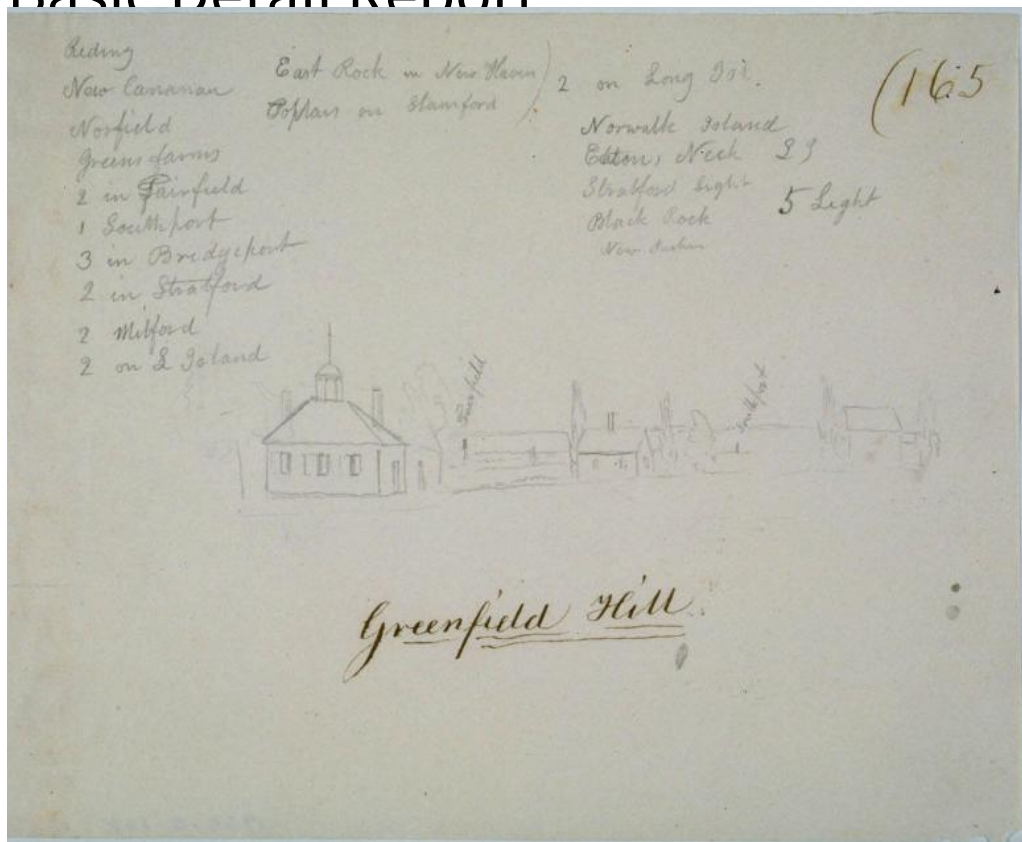 Basic Detail Report
Reding
New Cananan
Norfield
Greensfarms
2 in Fairfield
1 Southport
3 in Bridgeport
2 in Stratford
2 Milford
2 on L Island
East Rock in New Haven
Poplars on Stamford
2 on Long Isl.
(165
Norwalk Island
Eatons Neck
Stratford Light
Black Rock
New Haven
5 Light
Fairfield
Southport
Greenfield Hill